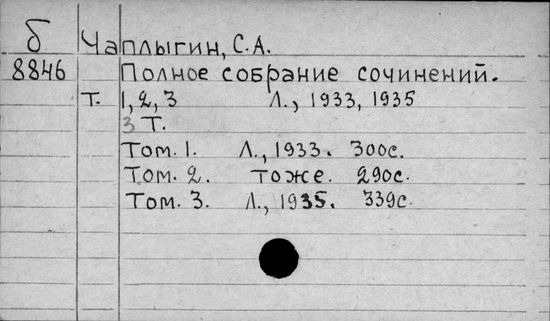 б Чаплыгин, С.А.
8846 Полное собрание сочинений.
Т. 1, 2, 3 Л., 1933, 1935
3 Т.
Том. 1. Л., 1933. 300с.
Том. 2. тоже. 290с.
Том. 3. Л., 1935. 339с.